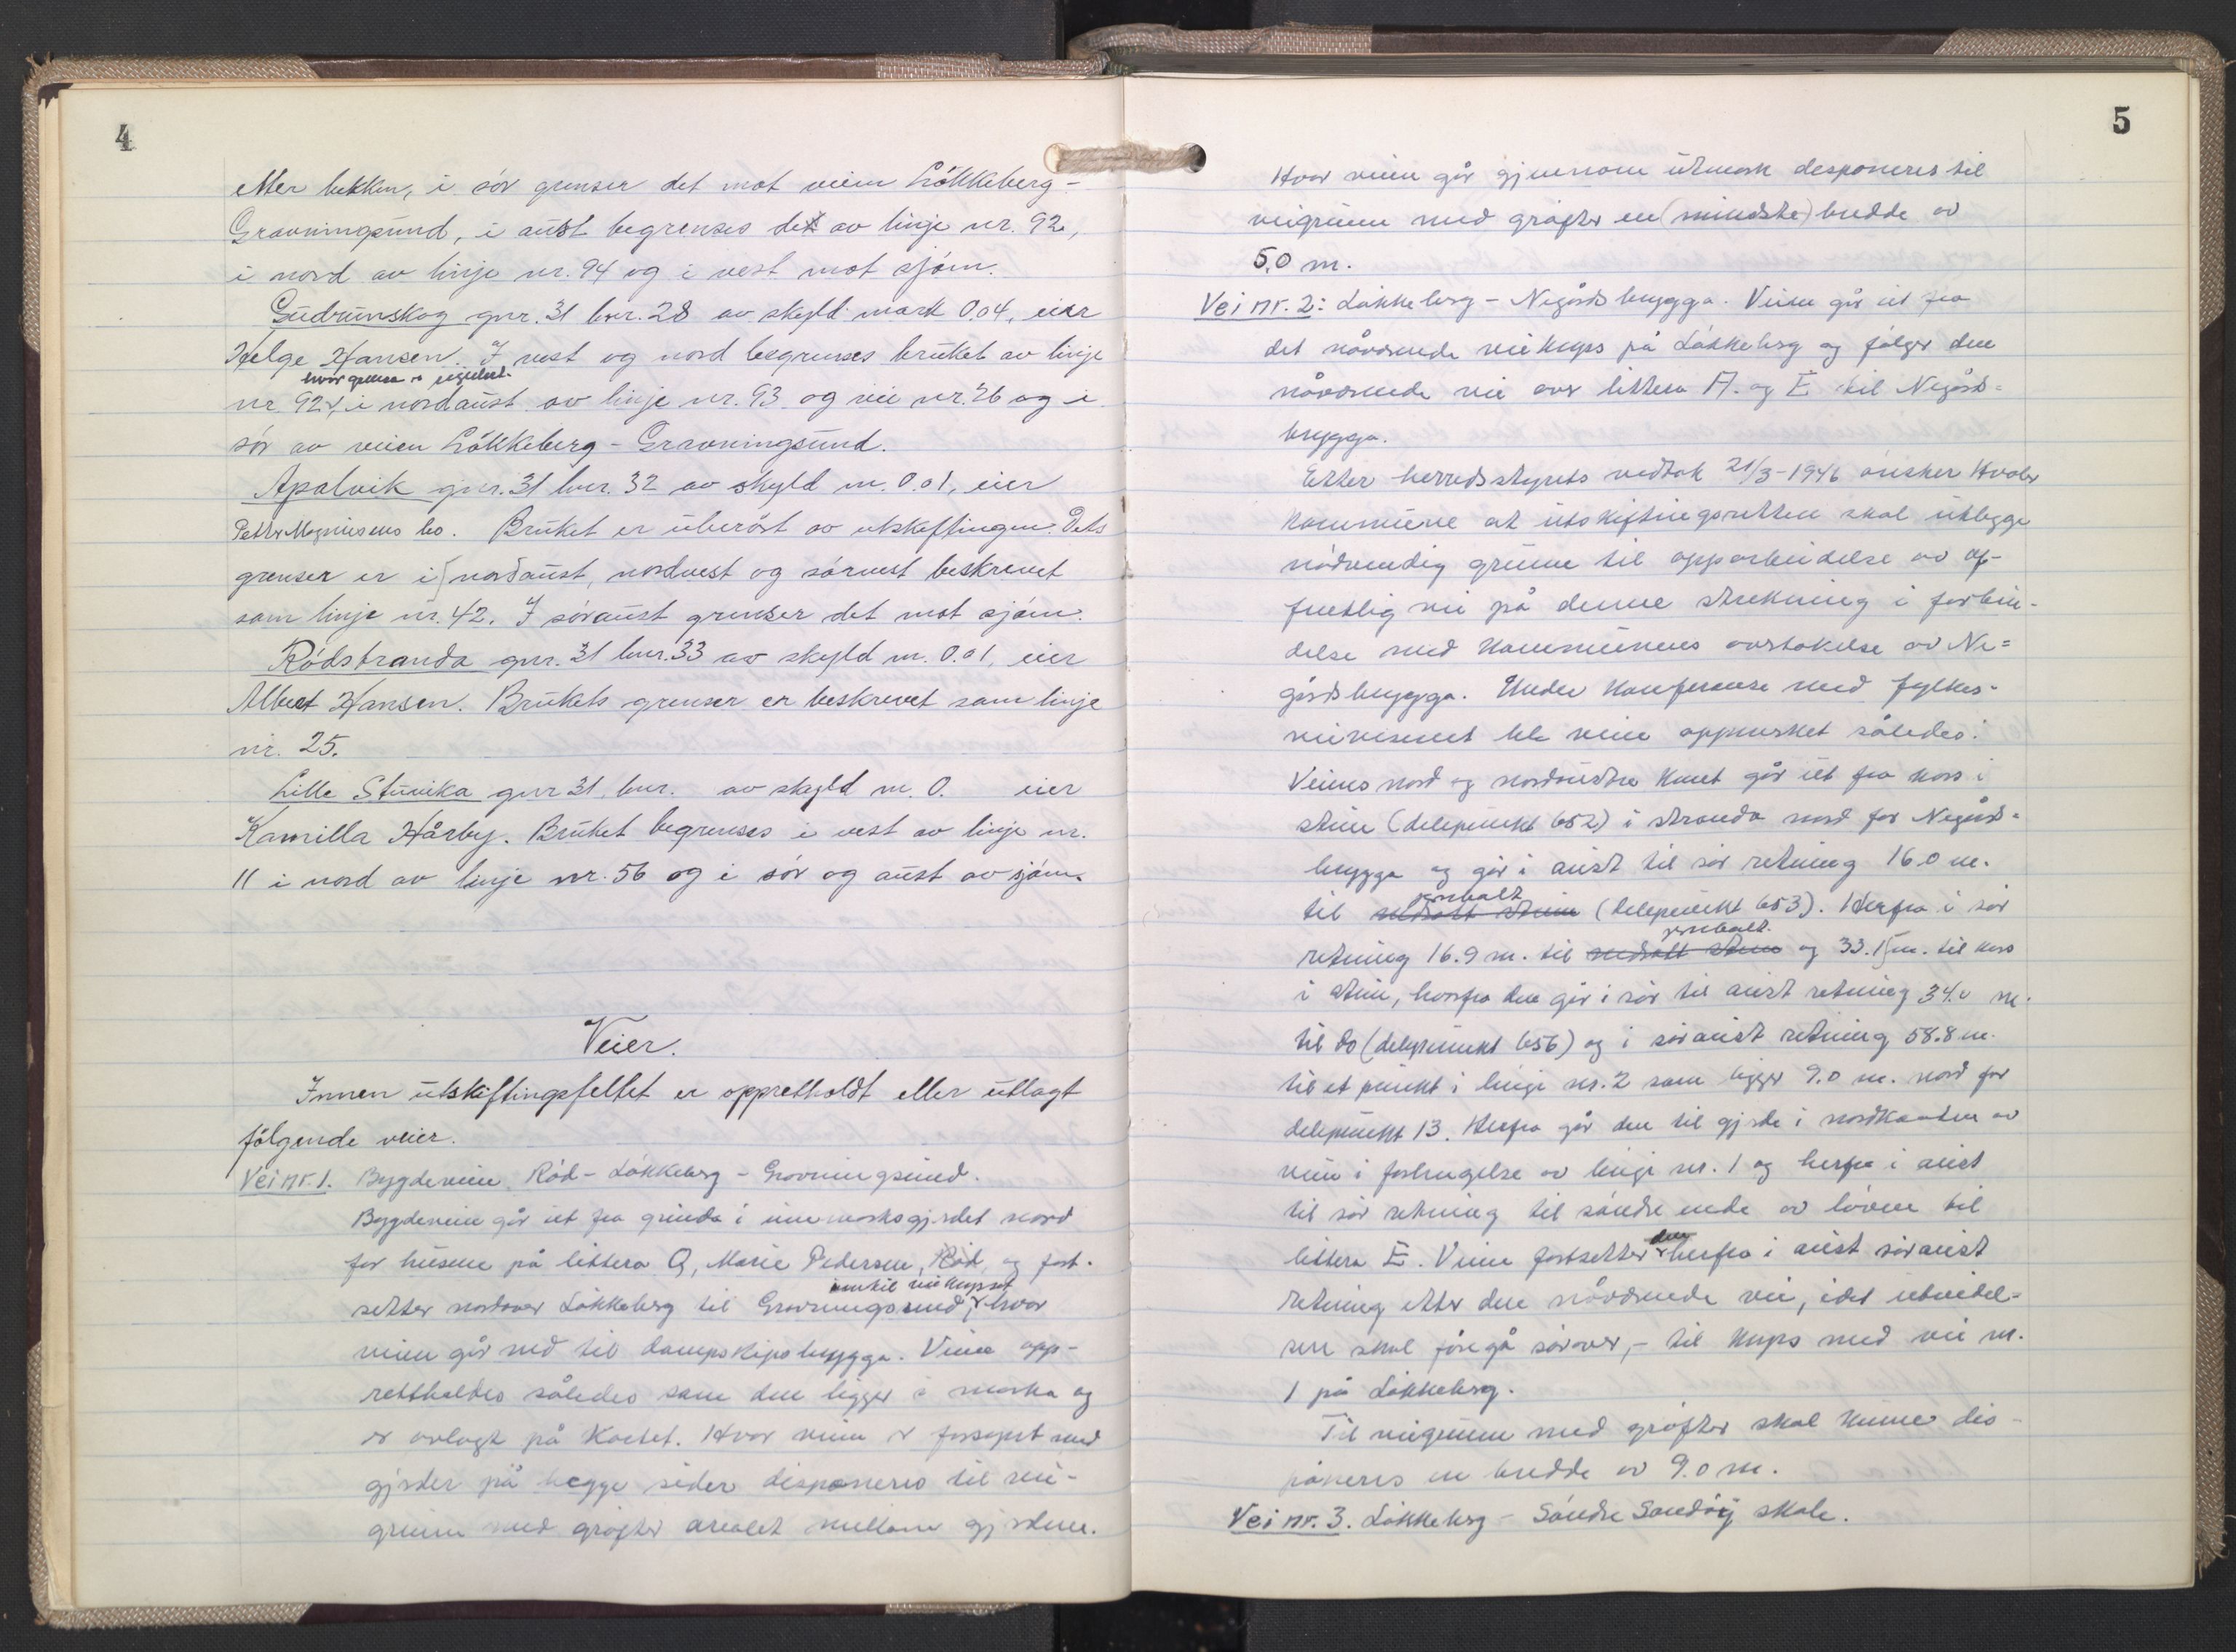 4
etter bekken, i sör grenser det mot veien Lökkeberg -
Gravningsund, i aust begrenses det av linje nr. 92,
i nord av linje nr. 94 og i vest mot sjöen.
Gudrunskog gnr. 31 bnr. 28 av skyld mark 0.04, eier
Helge Hansen. I vest og nord begrenses bruket av linje
hvor grensa er regulert.
nr. 92, i nordaust av linje nr. 93 og vei nr. 26 og i
sör av veien Lökkeberg - Gravningsund.
Apalvik gnr. 31 bnr. 32 av skyld m. 0.01, eier
Petter Magnusens bo. Bruket er uberört av utskiftingen. Dets
grenser er i nordaust, nordvest og sörvest beskrevet
som linje nr. 42. I söraust grenser det mot sjöen.
Rödstranda gnr. 31 bnr. 33 av skyld m. 0.01, eier
Albert Hansen. Brukets grenser er beskrevet som linje
nr. 25.
Lille Stuvika gnr 31, bnr. av skyld m. 0. eier
Kamilla Hårby. Bruket begrenses i vest av linje nr.
11 i nord av linje nr. 56 og i sör og aust av sjöen.
Veier.
Innen utskiftingsfeltet er opprettholdt eller utlagt
fölgende veier.
Vei nr. 1. Bygdeveien Röd - Lökkeberg - Gravningsund.
Bygdeveien går ut fra grinda i innmarksgjerdet nord
for husene på littera Q, Marie Pedersen, Röd, og fort-
inntil veikrysset
setter nordover Lökkeberg til Gravningsund, hvor
veien går ned til dampskipsbrygga. Veien opp-
rettholdes således som den ligger i marka og
er avlagt på kartet. Hvor veien er forsynt med
gjerder på begge sider disponeres til vei-
grunn med gröfter arealet mellom gjerdene.
5
Hvor veien går gjennom utmark desponeres til
veigrunn med gröfter en (mindste) bredde av
5,0 m.
Vei nr. 2: Lökkeberg - Negårdsbrygga. Veien går ut fra
det nåværende veikryss på Lökkeberg og fölger den
nåværende vei over littera A. og E til Negårds-
brygga.
Etter herredsstyrets vedtak 21/3-1946 önsker Hvaler
kommune at utskiftningsretten skal utlegge
nödvendig grunn til opparbeidelse av of-
fentlig vei på denne strekning i forbin-
delse med kommunenes overtakelse av Ne-
gårdsbrygga. Under konferanse med fylkes-
veivesenet ble veien oppmerket således:
Veiens nord og nordaustre kant går ut fra kors i
stein (delepunkt 652) i stranda nord for Negårds-
brygga og går i aust til sör retning 16.0 m.
jernbolt
til nedsatt stein (delepunkt 653). Herfra i sör
jernbolt.
retning 16.9 m. til nedsatt stein og 33.1 m. til kors
i stein, hvorfra den går i sör til aust retning 34.0 m.
til do (delepunkt 656) og i söraust retning 58.8 m.
til et punkt i linje nr. 2 som ligger 9.0 m. nord for
delepunkt 13. Herfra går den til gjerde i nordkanten av
veien i forlengelse av linje nr. 1 og herfra i aust
til sör retning til söndre ende av löven til
den
littera E. Veien fortsetter herfra i aust söraust
retning etter den nåværende vei, idet utvidel-
sen skal foregå sörover, - til kryss med vei nr.
1 på Lökkeberg.
Til veigrunn med gröfter skal kunne dis-
poneres en bredde av 9.0 m.
Vei nr. 3. Lökkeberg - Söndre Sandöy skole.